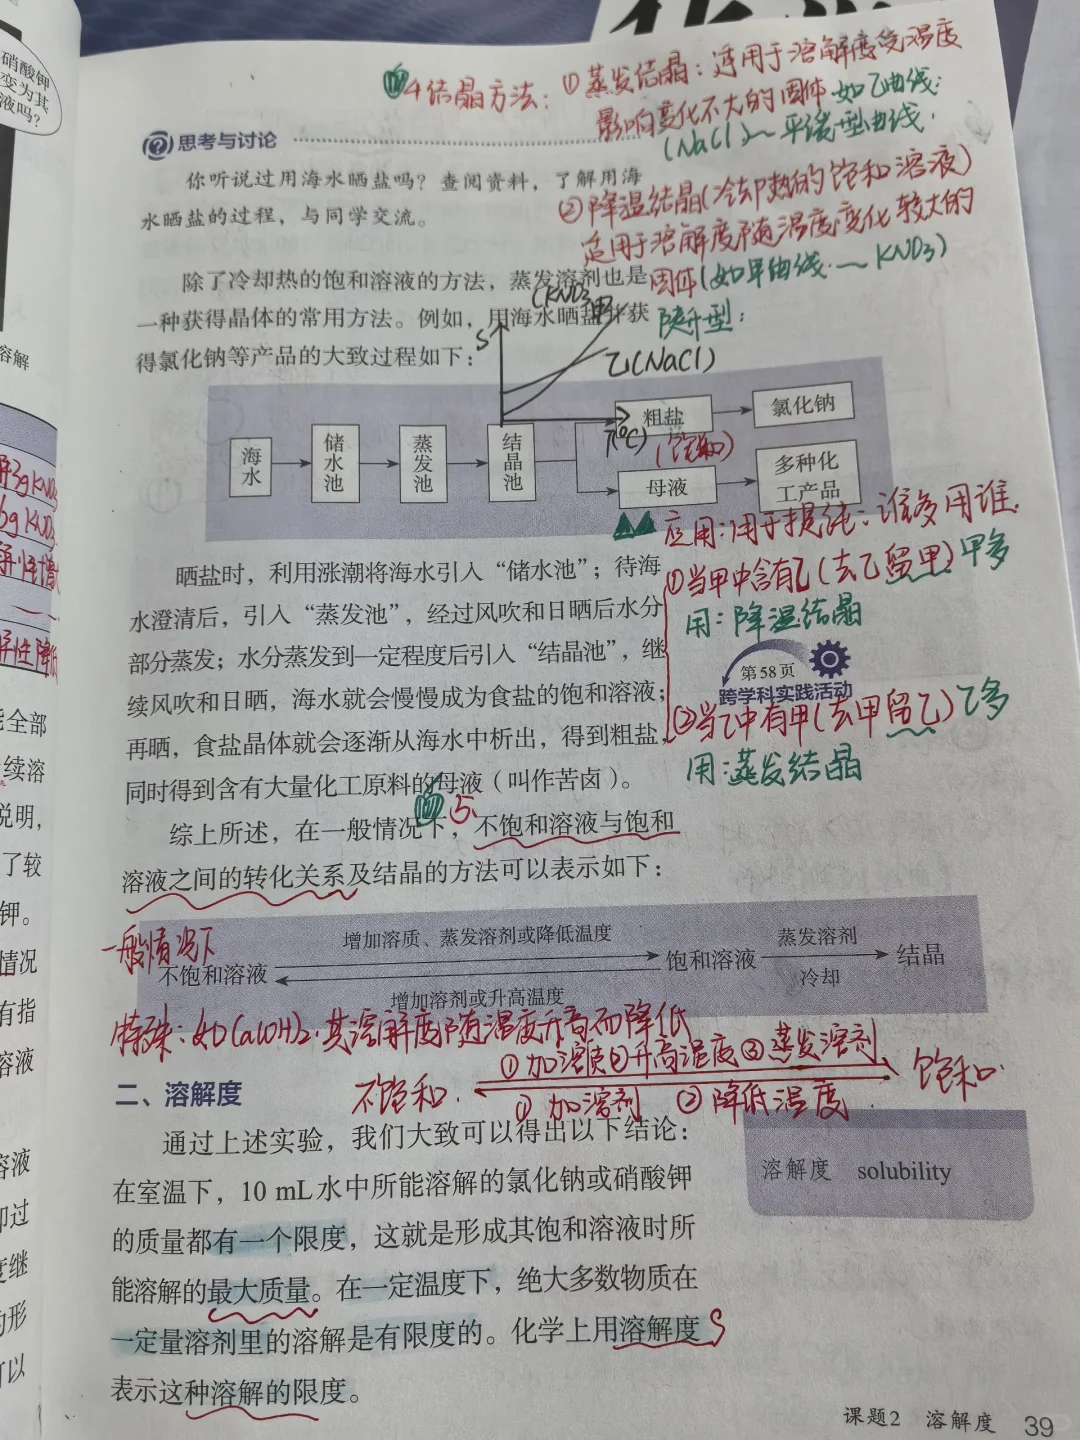 硝酸钾
变为其
液吗？
溶解
能全部
续溶
说明，
了较
钾。
情况
有指
溶液
溶液
却过
度继
的形
可以
4 结晶方法：①蒸发结晶：适用于溶解度受温度
影响变化不大的固体 如乙曲线：
(NaCl)~平缓型曲线．
思考与讨论
你听说过用海水晒盐吗？查阅资料，了解用海
水晒盐的过程，与同学交流。
②降温结晶(冷却热的饱和溶液)
适用于溶解度随温度变化较大的
固体(如甲曲线．— KNO3)
陡升型：
除了冷却热的饱和溶液的方法，蒸发溶剂也是
一种获得晶体的常用方法。例如，用海水晒盐并获
得氯化钠等产品的大致过程如下：
S
(KNO3 甲
乙(NaCl)
T(℃)
海水
储水池
蒸发池
结晶池
粗盐
氯化钠
(饱和)
母液
多种化
工产品
应用：用于提纯：谁多用谁．
①当甲中含有乙(去乙留甲)甲多
用：降温结晶
第58页
跨学科实践活动
②当乙中有甲(去甲留乙)乙多
用：蒸发结晶
晒盐时，利用涨潮将海水引入“储水池”；待海
水澄清后，引入“蒸发池”，经过风吹和日晒后水分
部分蒸发；水分蒸发到一定程度后引入“结晶池”，继
续风吹和日晒，海水就会慢慢成为食盐的饱和溶液；
再晒，食盐晶体就会逐渐从海水中析出，得到粗盐，
同时得到含有大量化工原料的母液（叫作苦卤）。
5、
综上所述，在一般情况下，不饱和溶液与饱和
溶液之间的转化关系及结晶的方法可以表示如下：
一般情况下
不饱和溶液
增加溶质、蒸发溶剂或降低温度
增加溶剂或升高温度
饱和溶液
蒸发溶剂
冷却
结晶
特殊：如Ca(OH)2．其溶解度随温度升高而降低
不饱和．
①加溶质②升高温度③蒸发溶剂
①加溶剂 ②降低温度．
饱和．
二、溶解度
通过上述实验，我们大致可以得出以下结论：
在室温下，10 mL水中所能溶解的氯化钠或硝酸钾
的质量都有一个限度，这就是形成其饱和溶液时所
能溶解的最大质量。在一定温度下，绝大多数物质在
一定量溶剂里的溶解是有限度的。化学上用溶解度 S
表示这种溶解的限度。
溶解度 solubility
课题2 溶解度 39